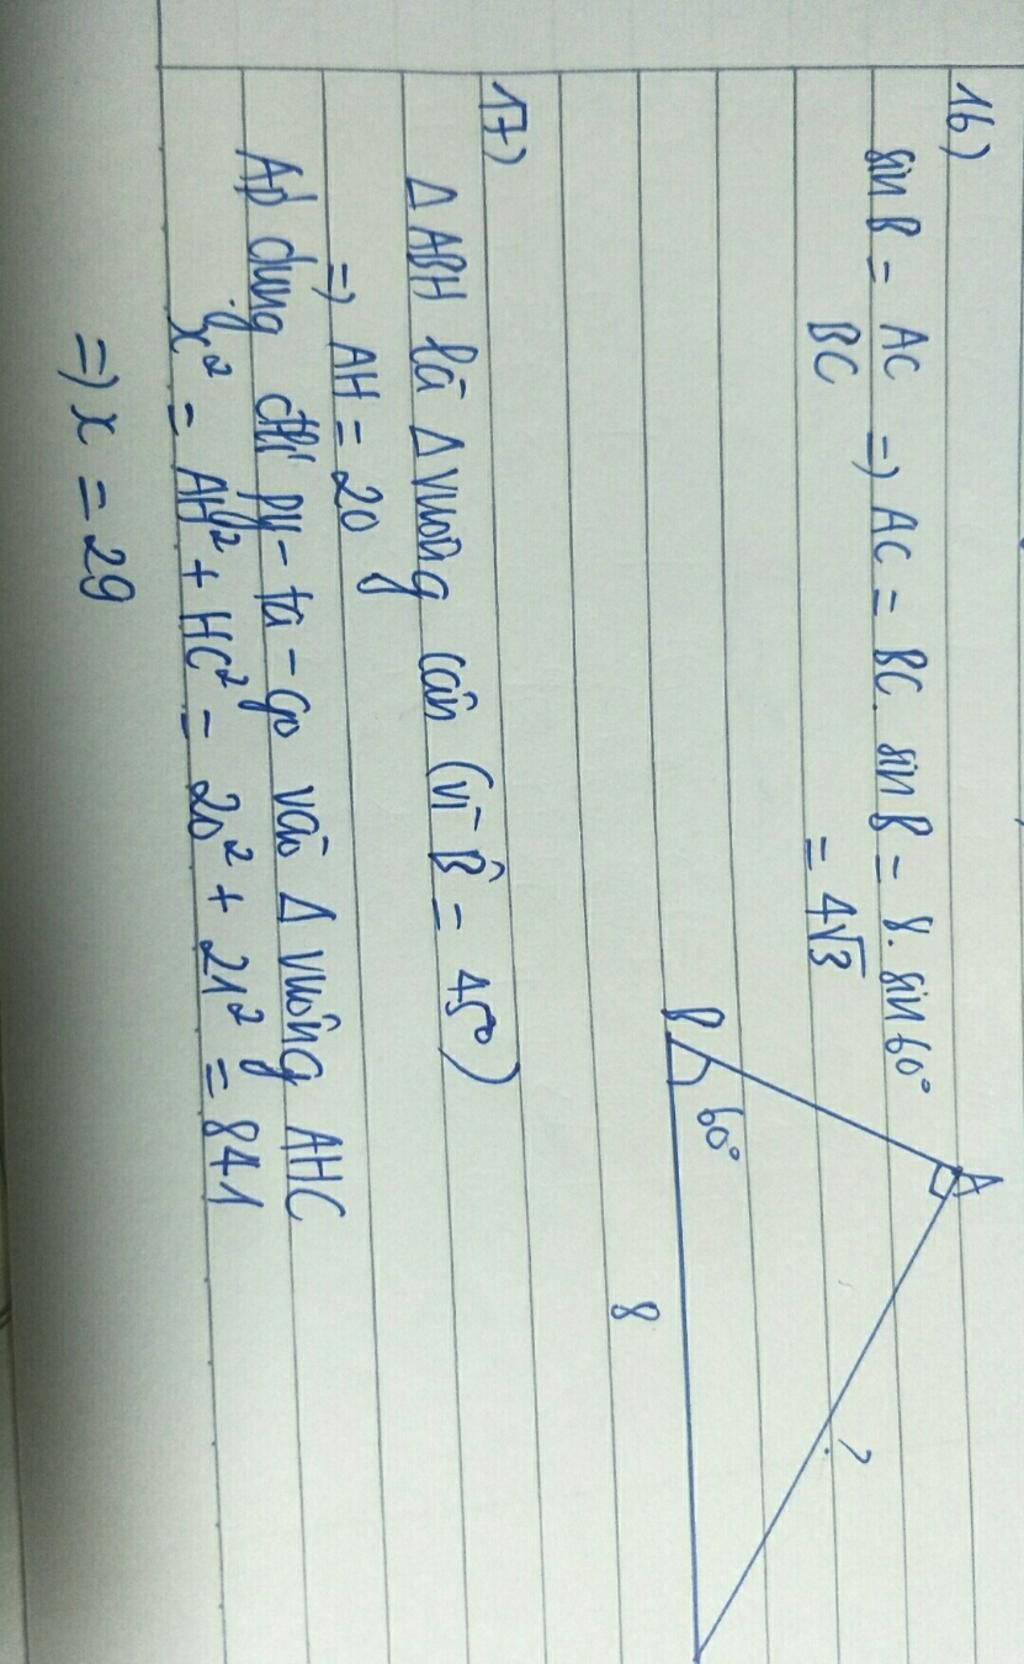 16)
sin B = AC => AC = BC. sin B = 8. sin 60°
BC = 4√3
A
B 60° ?
8
17)
Δ ABH là Δ vuông cân (vì B̂ = 45°)
=> AH = 20
Áp dụng đlí py-ta-go vào Δ vuông AHC
x² = AH² + HC² = 20² + 21² = 841
=> x = 29